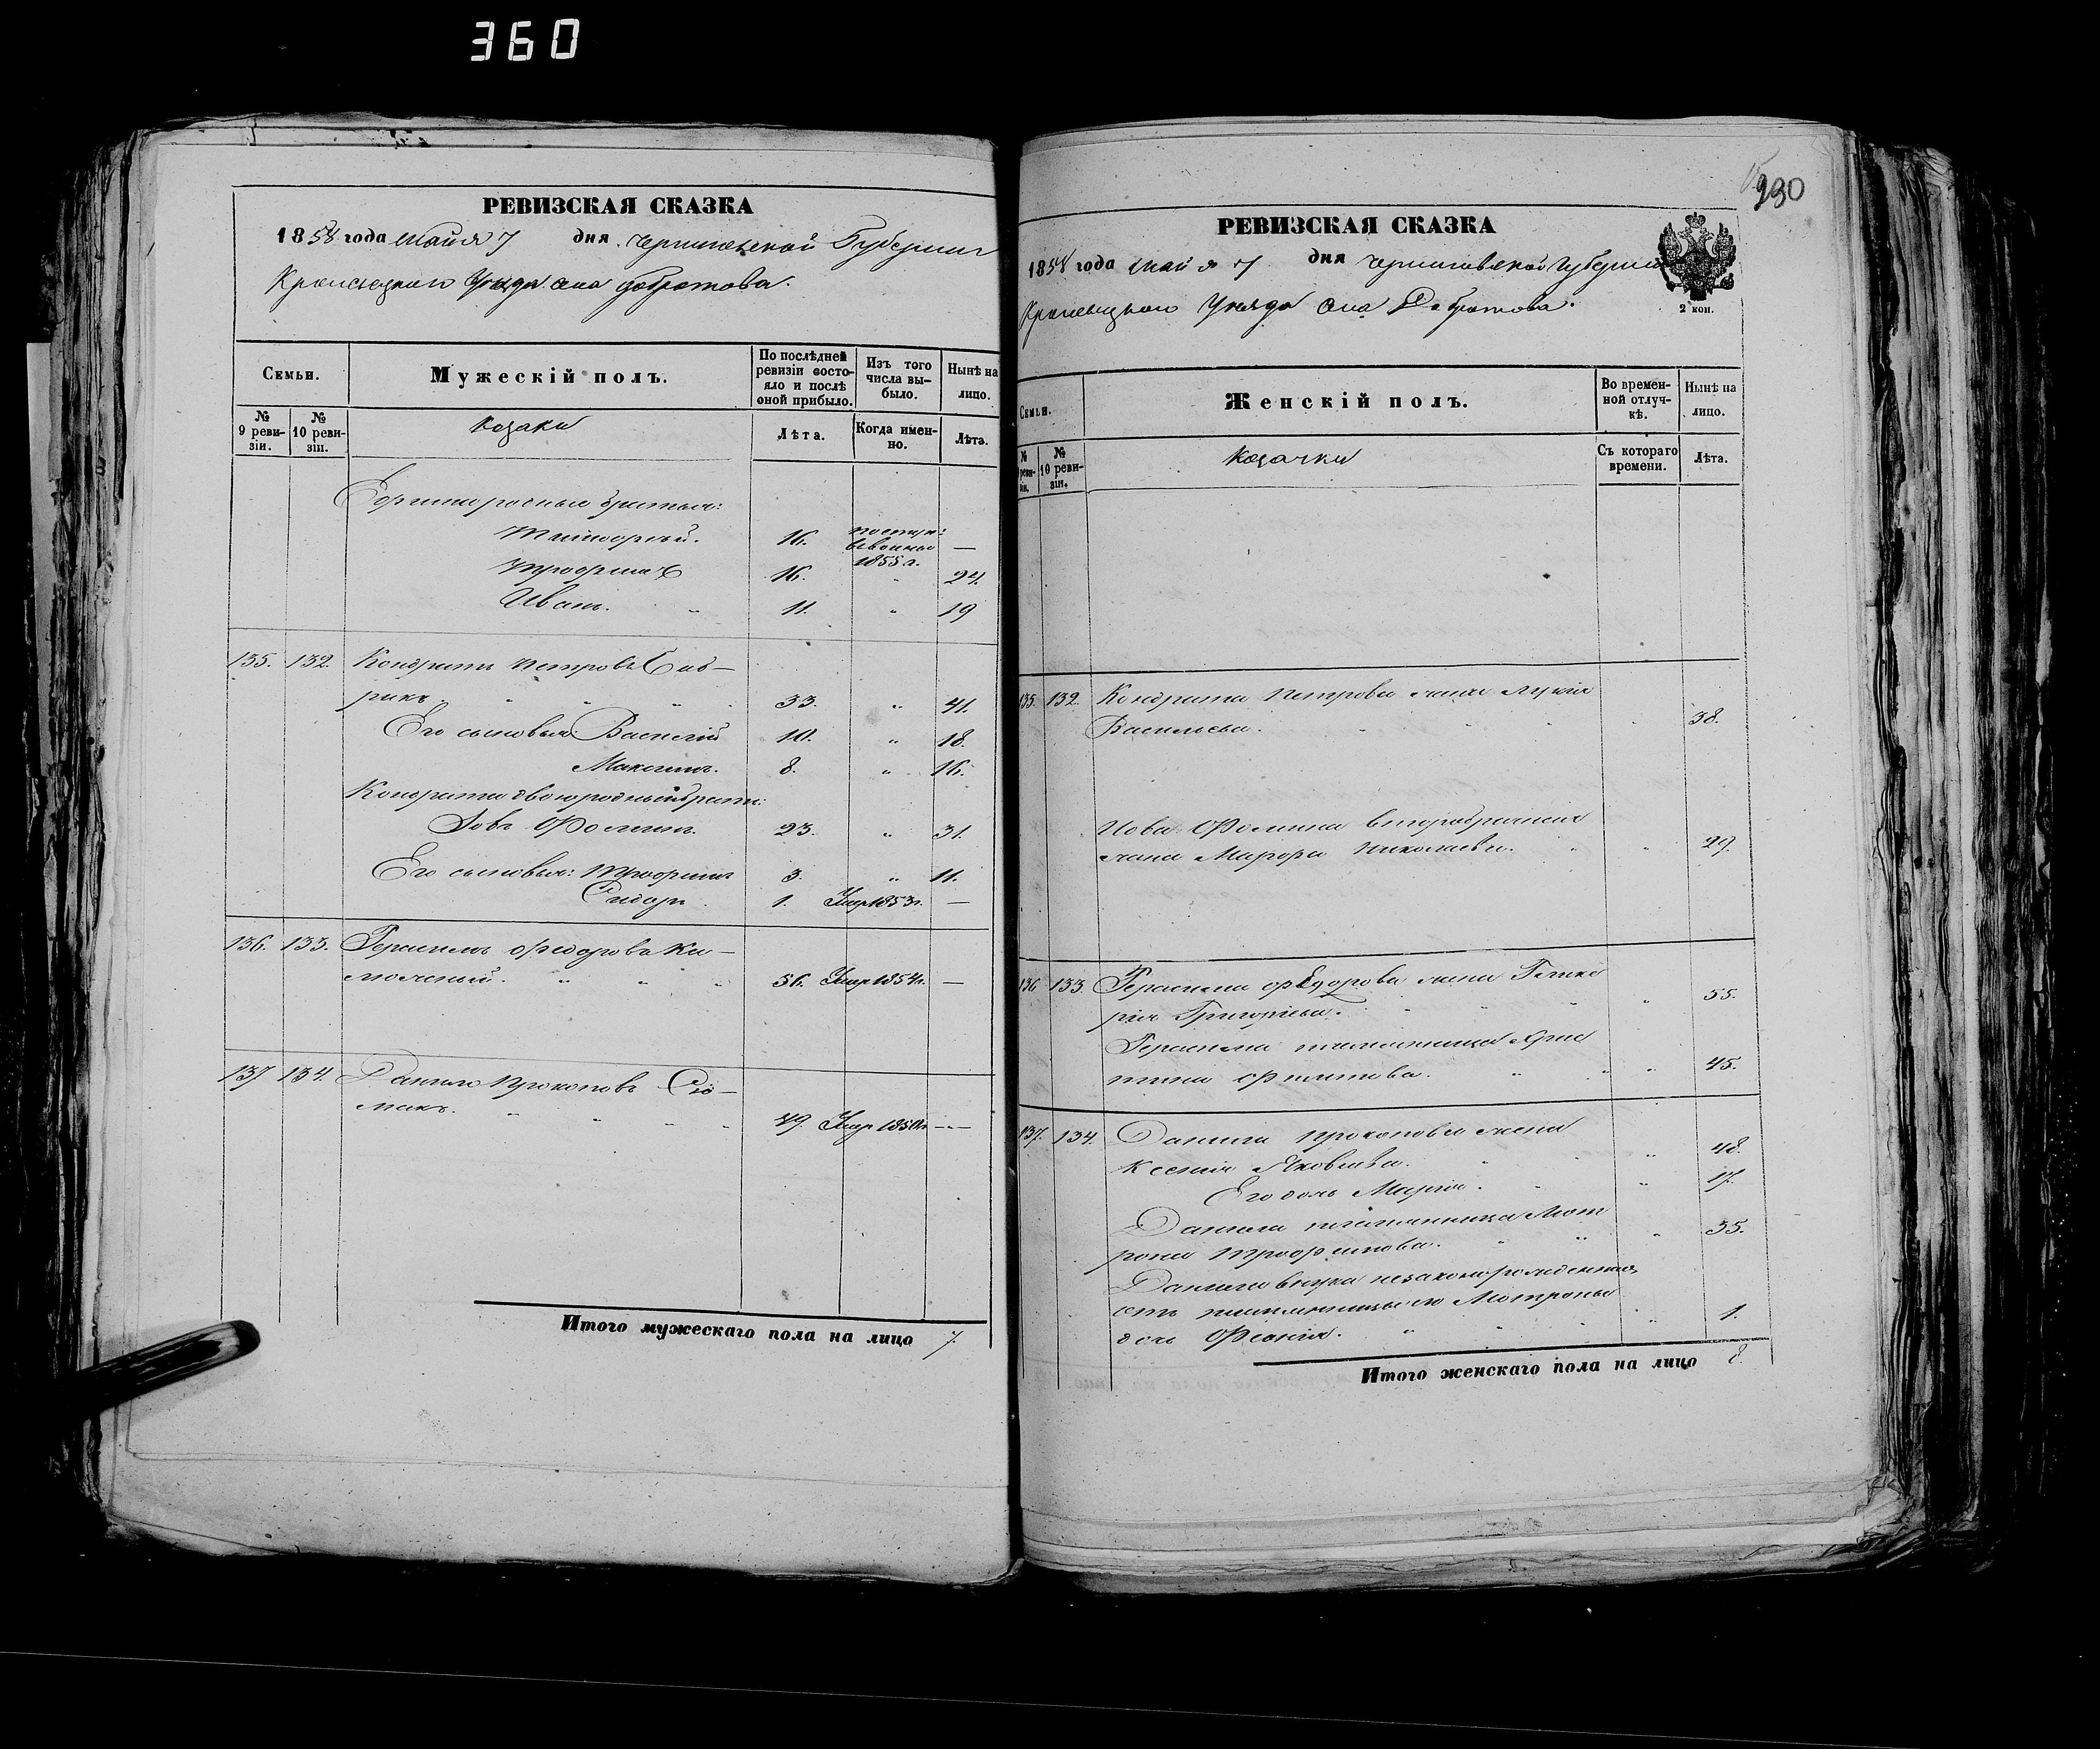 360
РЕВИЗСКАЯ СКАЗКА
1858 года мая 7 дня Черниговской Губернии
Кролевецкого Уезда села Добротова.
Семьи.
Мужескій полъ.
По послѣдней ревизіи состояло и послѣ оной прибыло.
Изъ того числа выбыло.
Нынѣ на лицо.
№ 9 ревизіи.
№ 10 ревизіи.
козаки
Лѣта.
Когда именно.
Лѣта.
родные братья:
16. поступ: 1855 г. —
Трофимъ 16. " 24.
Иванъ. " 11. " 19
135. 132. Кондратъ Петровъ
рикъ 33. " 41.
Его сыновья: Василій 10. " 18.
Максимъ. 8. " 16.
Кондрата двоюродный братъ:
Іовъ Фоминъ. 23. " 31.
Его сыновья: Трофимъ 3. " 11.
Сидоръ. 1. Умр. 1853 г. —
136. 133. Герасимъ Федоровъ
56. Умр. 1854 г. —
137 134. Данило Прокоповъ Сю—
макъ. 49. Умр. 1850 г. —
Итого мужескаго пола на лицо 7.
230
РЕВИЗСКАЯ СКАЗКА
1858 года мая 7 дня Черниговской Губернии
Кролевецкого Уезда села Добротова.
2 коп.
Семьи.
Женскій полъ.
Во временной отлучкѣ.
Нынѣ на лицо.
№ 9 ревизіи.
№ 10 ревизіи.
козачки
Съ котораго времени.
Лѣта.
135. 132. Кондрата Петрова жена
Васильева. 38.
Іова Фомина второбрачная
жена Марфа Николаева. " 29.
136 133. Герасима Федорова жена Глике
рія Григорьева. " 55.
Герасима племянница Хрис
тина Филипова. " 45.
137. 134. Данила Прокопова жена
Ксенія Яковлева. " 48.
Его дочь Марія. " 17.
Данила племянница Мот
рона Трофимова. " 35.
Данила внука незаконорожденная
племянницы его Мотроны
дочь " 1.
Итого женскаго пола на лицо 8.